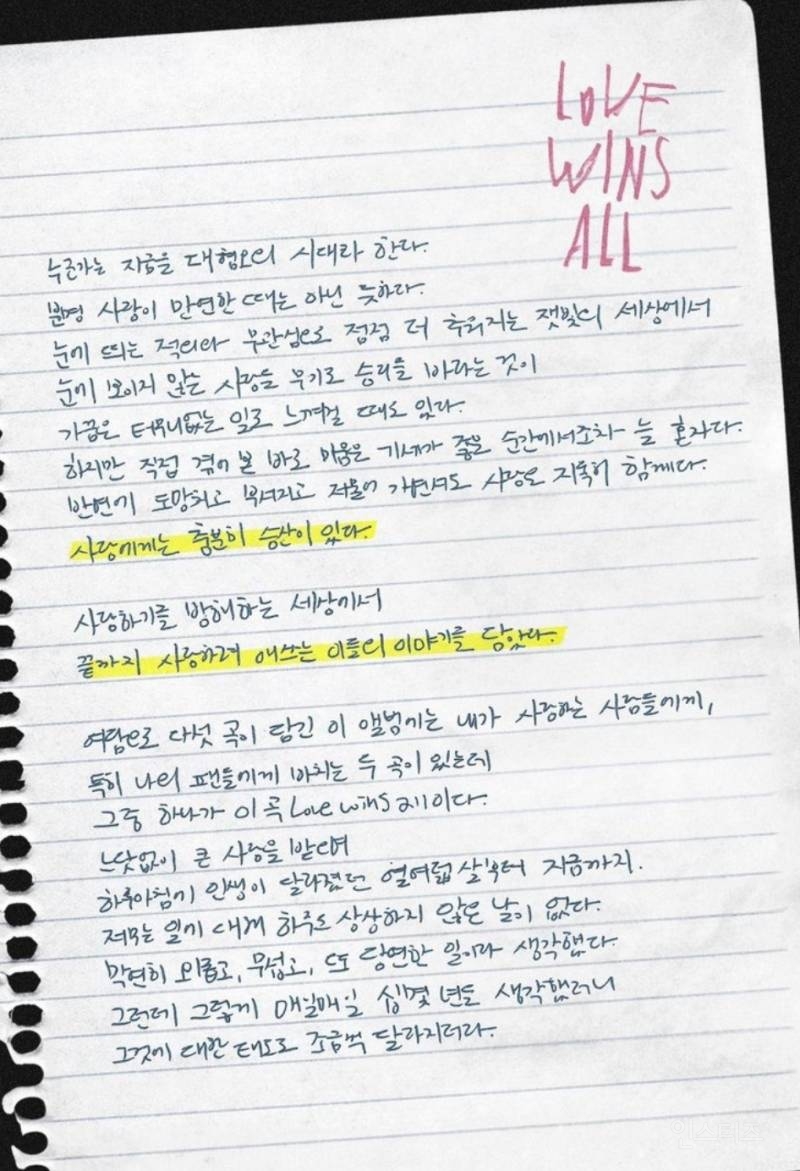 LOVE
WINS
ALL
누군가는 지금을 대혐오의 시대라 한다.
분명 사랑이 만연한 때는 아닌 듯하다.
눈에 띄는 적의와 무관심으로 점점 더 추워지는 잿빛의 세상에서
눈에 보이지 않는 사랑을 무기로 승리를 바라는 것이
가끔은 터무니없는 일로 느껴질 때도 있다.
하지만 직접 겪어 본 바로 미움은 기세가 좋은 순간에서조차 늘 혼자다.
반면에 도망치고 부서지고 저물어 가면서도 사랑은 지독히 함께다.
사랑에게는 충분히 승산이 있다.
사랑하기를 방해하는 세상에서
끝까지 사랑하려 애쓰는 이들의 이야기를 담았다.
여담으로 다섯 곡이 담긴 이 앨범에는 내가 사랑하는 사람들에게,
특히 나의 팬들에게 바치는 두 곡이 있는데
그중 하나가 이 곡 Love wins all이다.
느닷없이 큰 사랑을 받으며
하루아침에 인생이 달라졌던 열여덟 살부터 지금까지.
저무는 일에 대해 하루도 상상하지 않은 날이 없다.
막연히 외롭고, 무섭고, 또 당연한 일이라 생각했다.
그런데 그렇게 매일매일 십몇 년을 생각했더니
그것에 대한 태도로 조금씩 달라지더라.
인스티즈